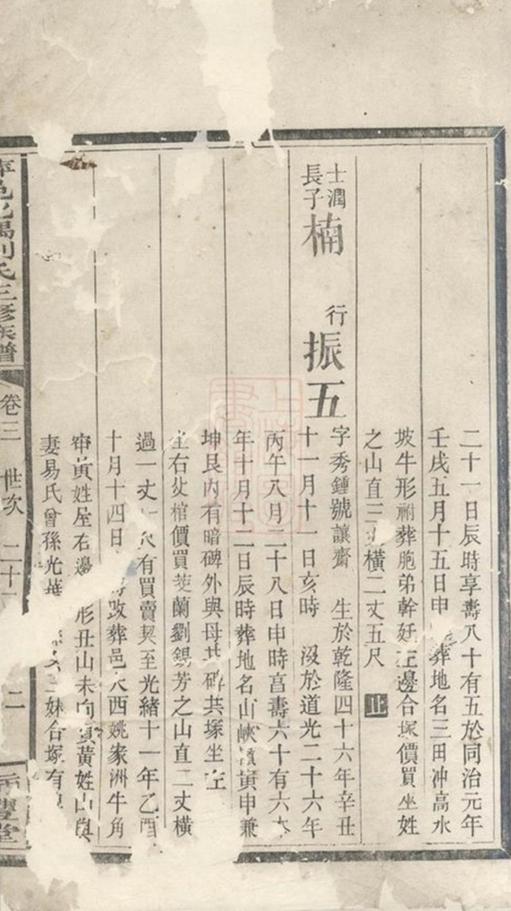 二十一日辰時享壽八十有五於同治元年
壬戌五月十五日申葬地名三田冲高水
坡牛形祔葬胞弟幹廷左邊合塚價買坐姓
之山直三橫二丈五尺 止
士潤長子楠 行振五 字秀鍾號讓齋 生於乾隆四十六年辛丑
十一月十一日亥時 沒於道光二十六年
丙午八月二十八日申時享壽六十有六
年十月十二日辰時葬地名山峽寅申兼
坤艮內有暗碑外與母共碑共塚坐左
右父棺價買茭蘭劉錫芳之山直二丈橫
過一丈六有買賣契至光緒十一年乙酉
十月十四日改葬邑西姚家洲牛角
黃姓屋右邊形丑山未向黃姓山與
妻易氏曾孫光妹合塚有
邑劉氏三修族譜 卷三 世次 二十 二 豐堂